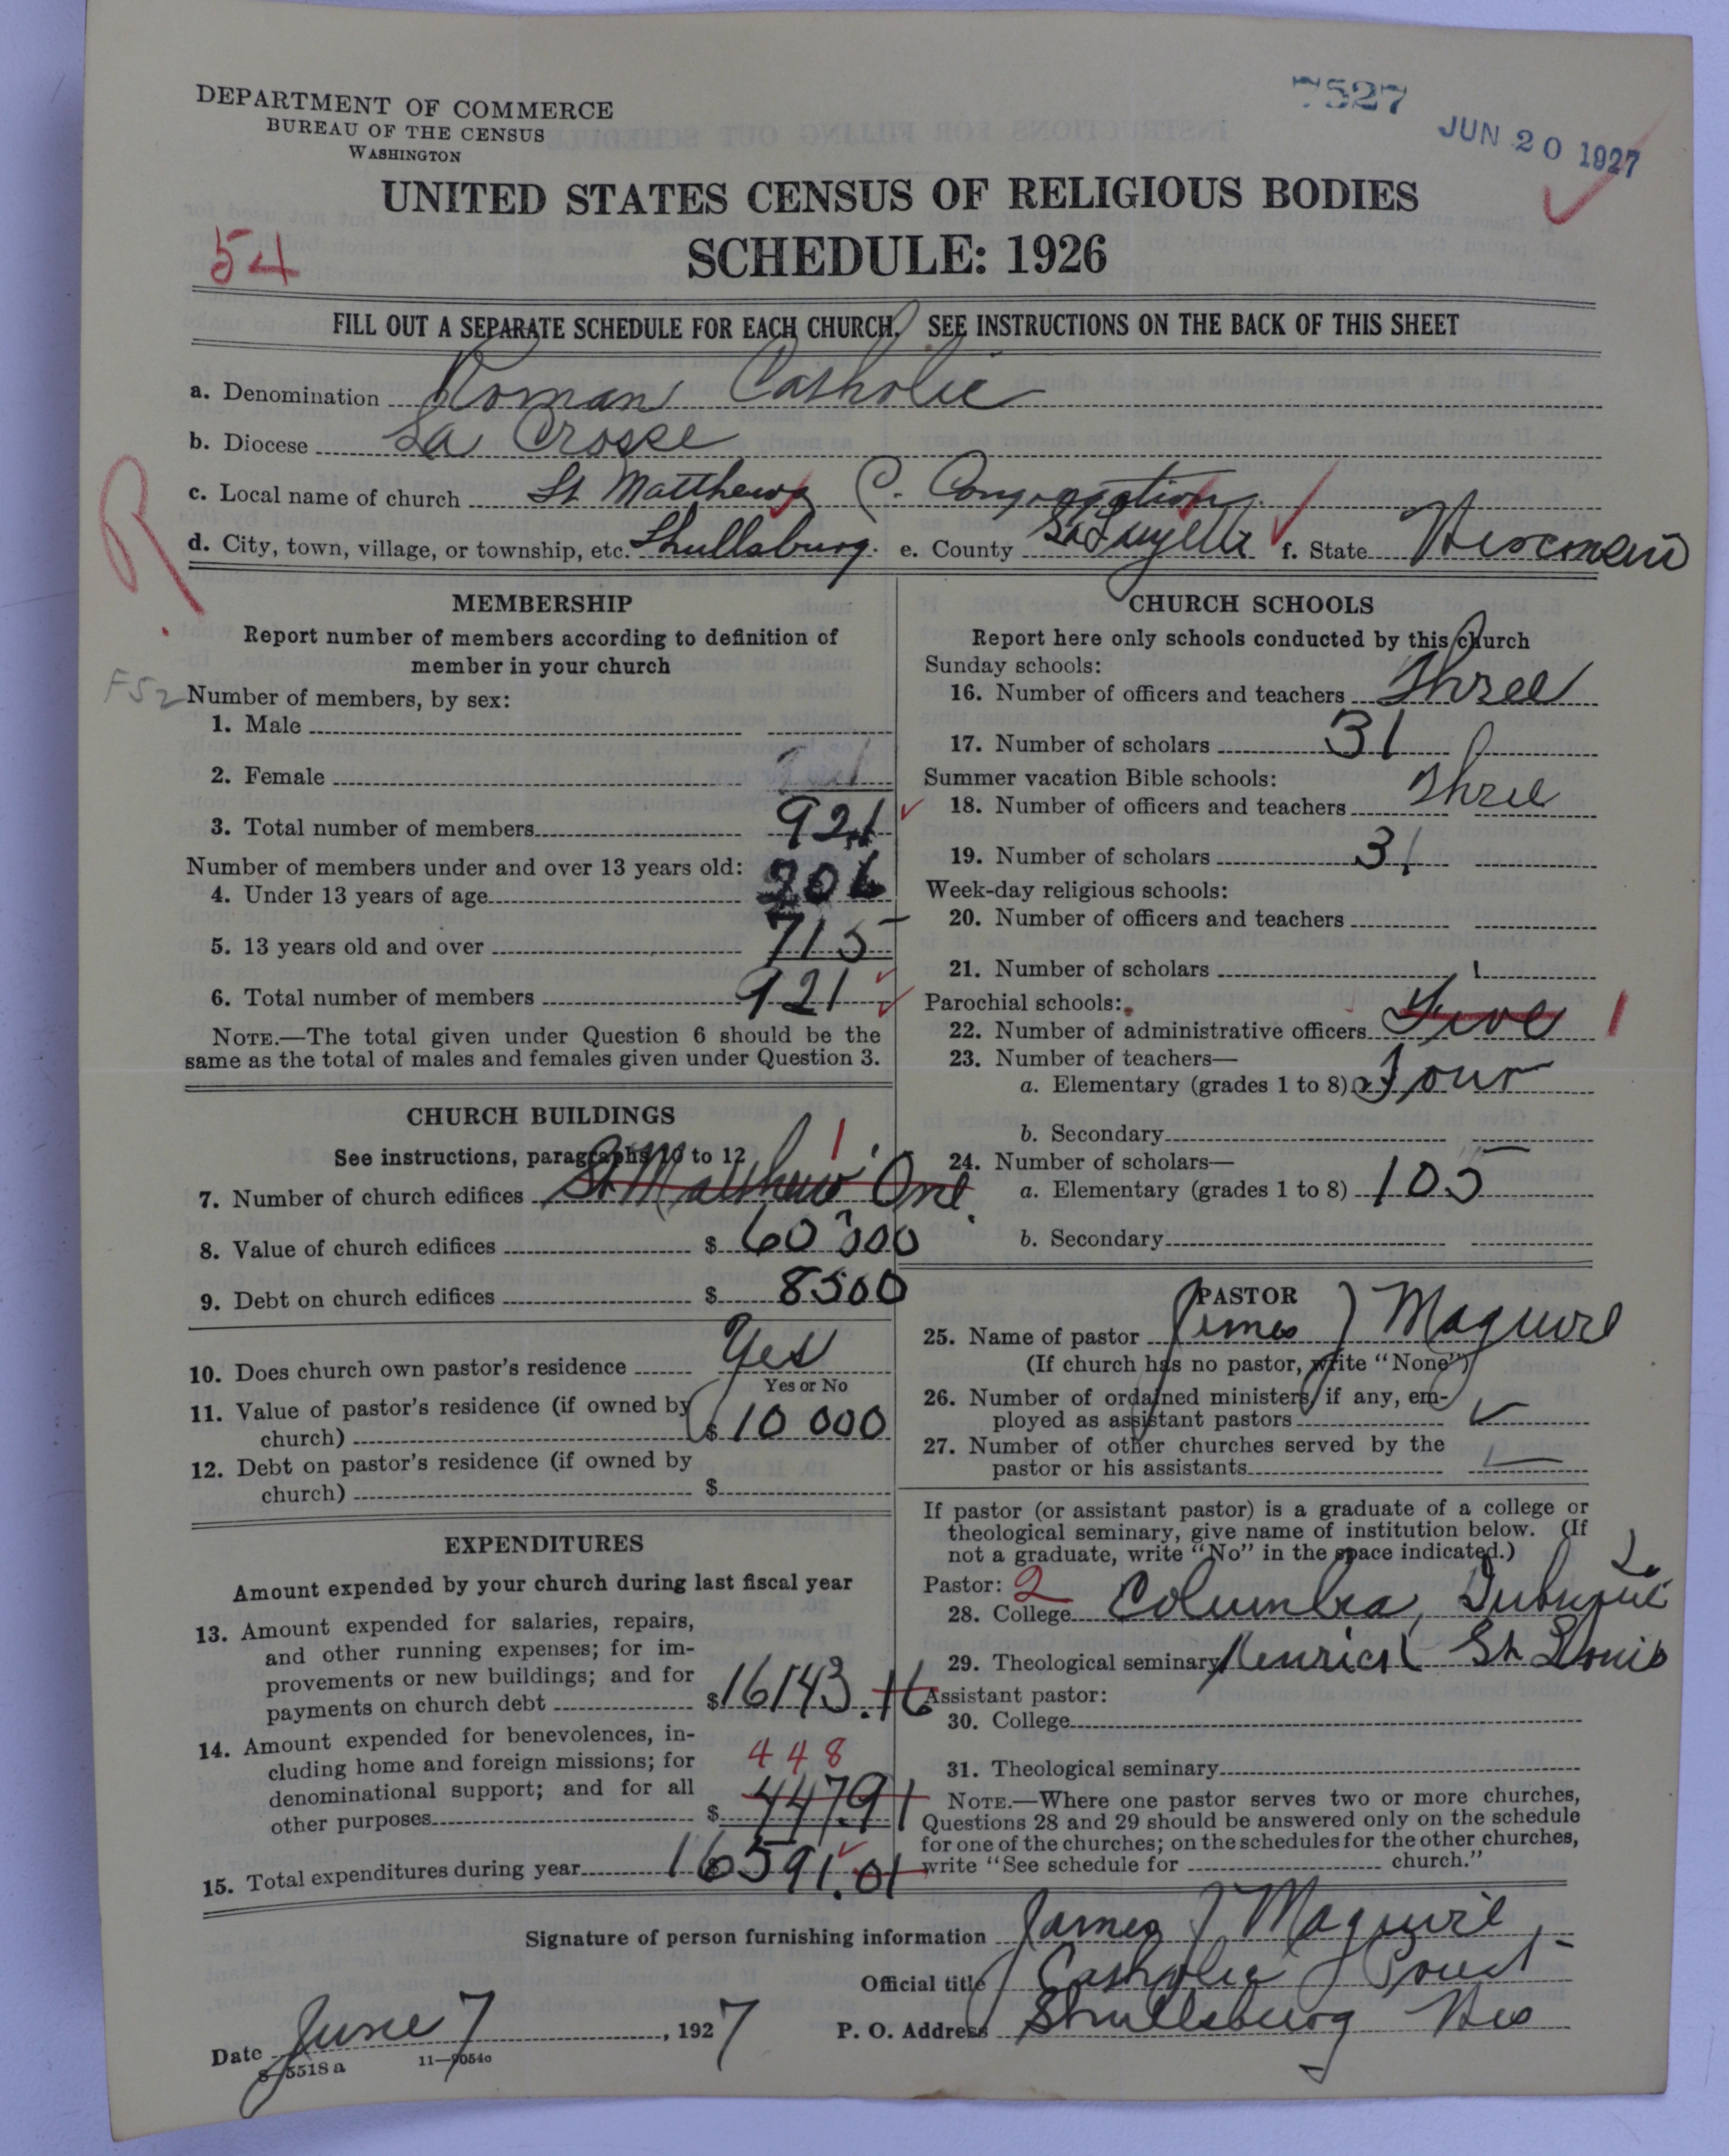 DEPARTMENT OF COMMERCE
BUREAU OF THE CENSUS
WASHINGTON
7527
JUN 20 1927
UNITED STATES CENSUS OF RELIGIOUS BODIES
SCHEDULE: 1926
54
FILL OUT A SEPARATE SCHEDULE FOR EACH CHURCH. SEE INSTRUCTIONS ON THE BACK OF THIS SHEET
a. Denomination Roman Catholic
b. Diocese La Crosse
c. Local name of church St Matthews C. Congregation
d. City, town, village, or township, etc. Shullsburg. e. County LaFayette f. State Wisconsin
R
MEMBERSHIP
Report number of members according to definition of
member in your church
FS2
Number of members, by sex:
1. Male
2. Female
3. Total number of members 921
Number of members under and over 13 years old:
4. Under 13 years of age 206
5. 13 years old and over 715
6. Total number of members 921
NOTE.—The total given under Question 6 should be the
same as the total of males and females given under Question 3.
CHURCH BUILDINGS
See instructions, paragraphs 10 to 12
1
7. Number of church edifices St Matthew One.
8. Value of church edifices $ 60000
9. Debt on church edifices $ 8500
10. Does church own pastor's residence Yes
Yes or No
11. Value of pastor's residence (if owned by
church) $ 10 000
12. Debt on pastor's residence (if owned by
church) $
EXPENDITURES
Amount expended by your church during last fiscal year
13. Amount expended for salaries, repairs,
and other running expenses; for im-
provements or new buildings; and for
payments on church debt $ 16143.16
14. Amount expended for benevolences, in-
cluding home and foreign missions; for
denominational support; and for all
448
other purposes $ 447.91
15. Total expenditures during year $ 16591.01
CHURCH SCHOOLS
Report here only schools conducted by this church
Sunday schools:
16. Number of officers and teachers Three
17. Number of scholars 31
Summer vacation Bible schools:
18. Number of officers and teachers Three
19. Number of scholars 31
Week-day religious schools:
20. Number of officers and teachers
21. Number of scholars
Parochial schools:
22. Number of administrative officers Five 1
23. Number of teachers—
a. Elementary (grades 1 to 8) Four
b. Secondary
24. Number of scholars—
a. Elementary (grades 1 to 8) 105
b. Secondary
PASTOR
25. Name of pastor James J Maguire
(If church has no pastor, write "None")
26. Number of ordained ministers, if any, em-
ployed as assistant pastors
27. Number of other churches served by the
pastor or his assistants
If pastor (or assistant pastor) is a graduate of a college or
theological seminary, give name of institution below. (If
not a graduate, write "No" in the space indicated.)
Pastor: 2
28. College Columbia, Dubuque
29. Theological seminary Kenrick St Louis
Assistant pastor:
30. College
31. Theological seminary
NOTE.—Where one pastor serves two or more churches,
Questions 28 and 29 should be answered only on the schedule
for one of the churches; on the schedules for the other churches,
write "See schedule for church."
Signature of person furnishing information James J Maguire
Official title Catholic Priest
Date June 7, 1927 P. O. Address Shullsburg Wis
8—5518 a 11—9054c